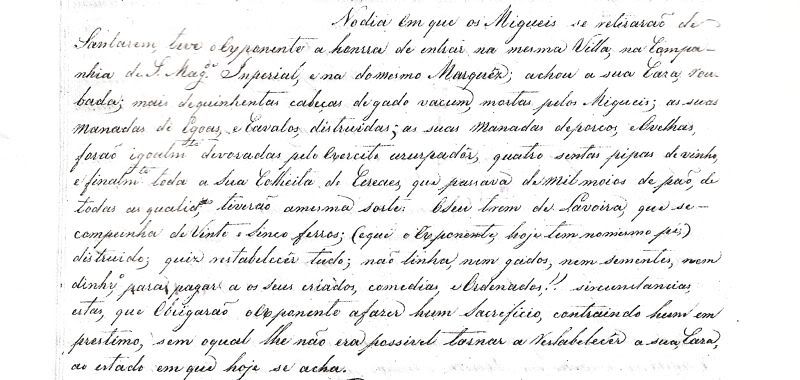 No dia em que os Migueis se retirarão de
Santarem, teve o Exponente a honra de entrar na mesma Villa, na Compa-
nhia de S. Mag.e Imperial, e na do mesmo Marquêz; achou a sua Caza rou-
bada; mais de quinhentas cabeças de gado vacum, mortas pelos Migueis; as suas
manadas de Egoas, e Cavalos distruidas; as suas manadas de porcos, e Ovelhas,
forão igoalm.te devoradas pelo Exercito uzurpadôr, quatro sentas pipas de vinho,
e finalm.te toda a sua Colheita de Cereaes, que passava de mil moios de pão, de
todas as qualid.es, tiverão a mesma sorte. O seu trem de Lavoira, que se-
compunha de Vinte e Sinco ferros; (e que o Exponente, hoje tem no mesmo pé;)
distruido; quiz restabelecêr tudo; não tinha, nem gados, nem sementes, nem
dinhr.o para pagar a os seus criádos, comedias, e Ordenados!! sircunstancias
estas, que Obrigarão o Exponente a fazer hum Sacrificio, contraindo hum em
prestimo, sem o qual lhe não era possivel tornar a restabelecêr a sua Caza,
ao estado em que hoje se acha.